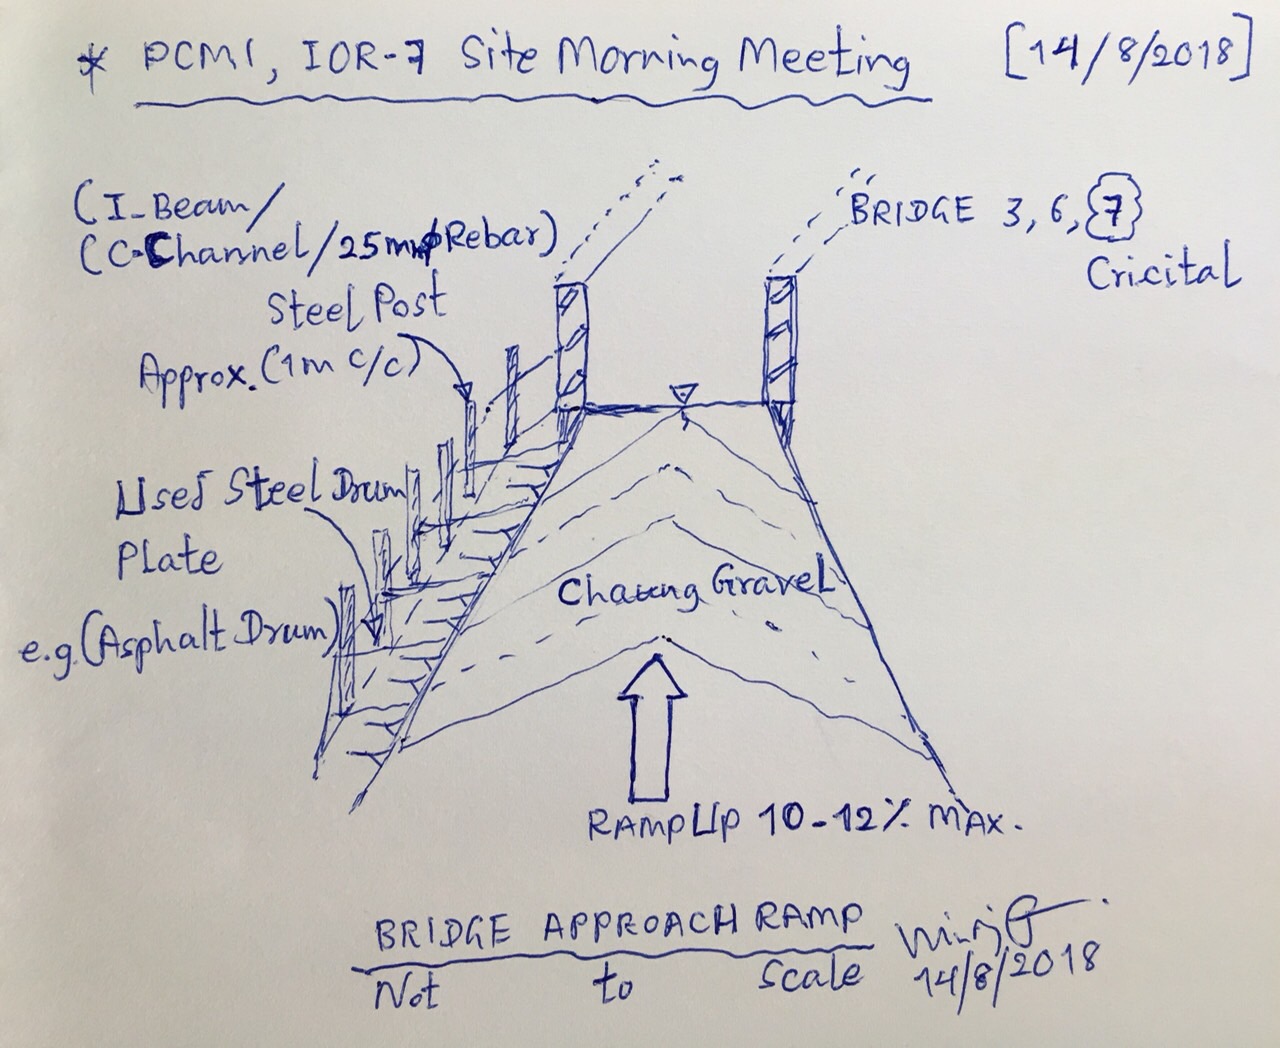 * PCMI, IOR-7 Site Morning Meeting [14/8/2018]
(I-Beam/
(C-Channel/25mmφRebar)
Steel Post
Approx. (1m c/c)
BRIDGE 3, 6, 7
Cricital
Used Steel Drum
Plate
e.g. (Asphalt Drum)
Gravel
RAMP UP 10-12% MAX.
BRIDGE APPROACH RAMP
Not to Scale
14/8/2018